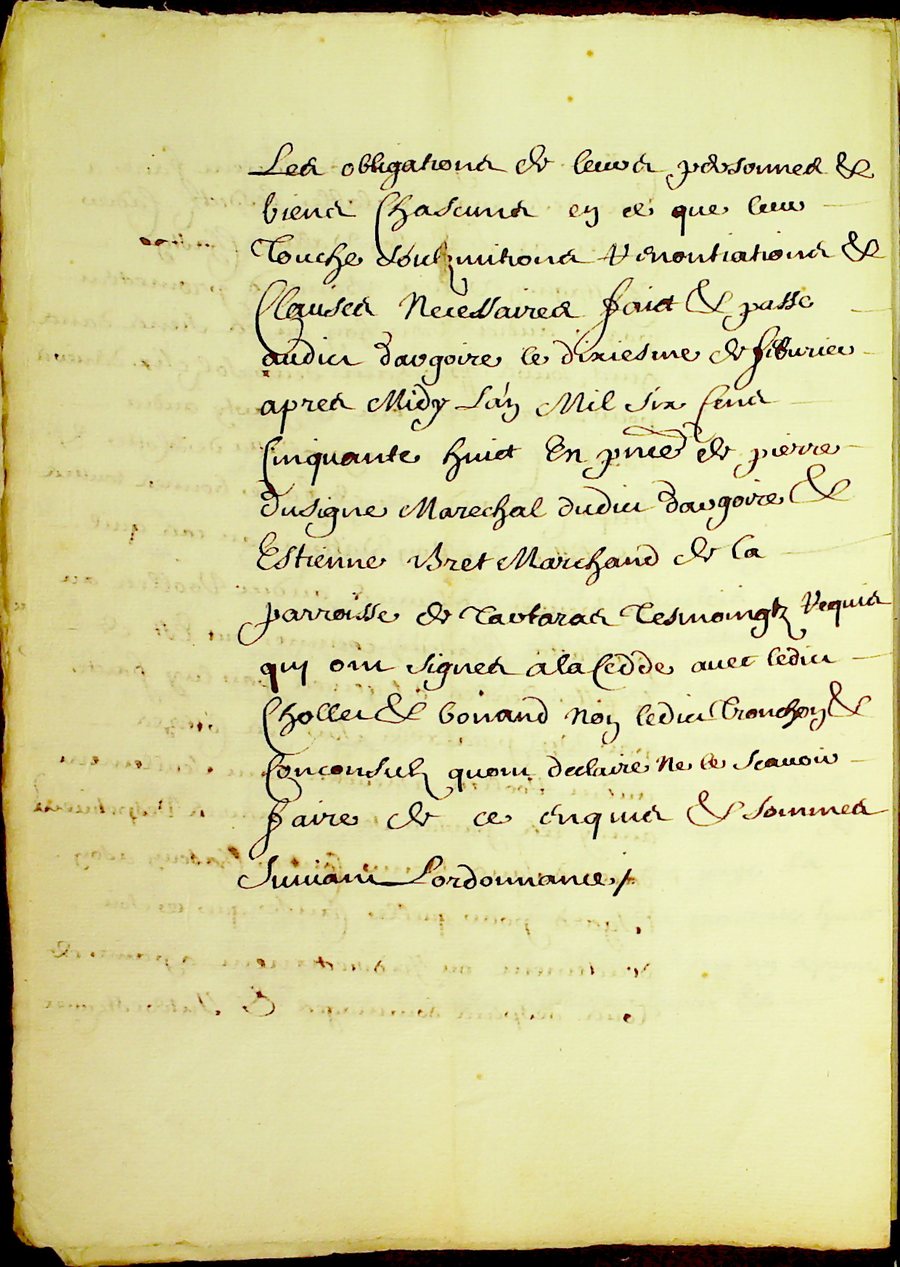 Les obligations de leurs personnes &
biens Chascuns en ce que leur
Touche soubzmitions Renontiations &
Clauses Necessaires faict & passe
audict dargoire le dixiesme de feburier
apres Midy L'an Mil Six Cens
Cinquante huict En pnce de pierre
dusigne Marechal dudict dargoire &
Estienne Bret Marchand de la
parroisse de Tartaras Tesmoingtz Requis
quj ont signes a la Cedde auec ledict
Chollet & bonand Non ledict Tronchon &
Conconsulz quont declaire Ne le Scauoir
faire de ce enquis & sommes
Suiuant Lordonnance /.